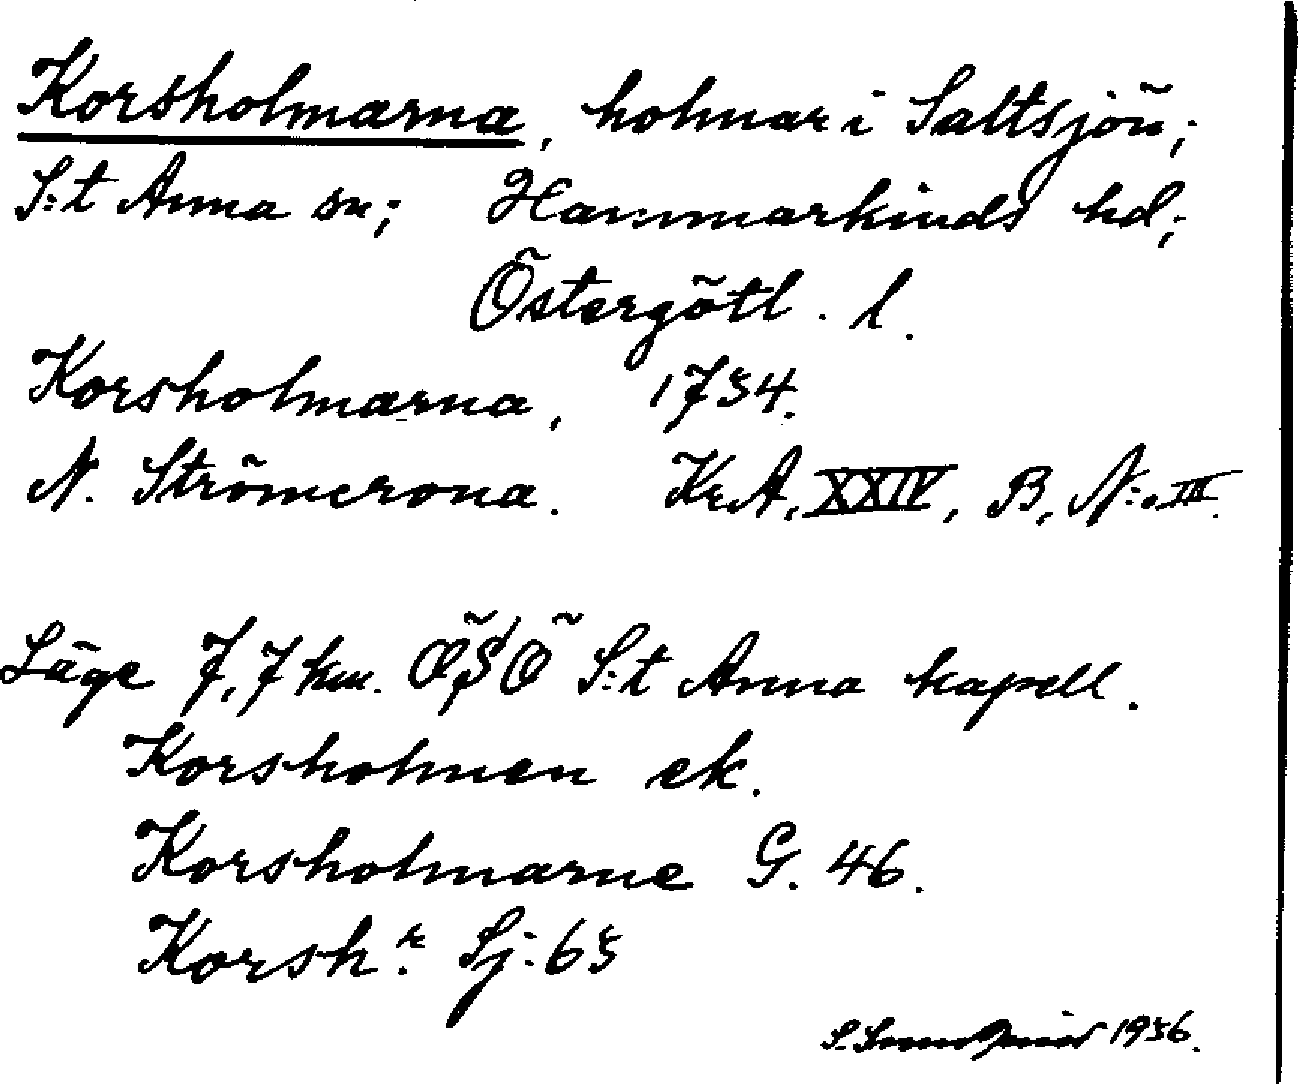 Korsholmarna, holmar i Saltsjön;
S:t Anna sn; Hammarkinds hd;
Östergötl. l.
Korsholmarna, 1734.
N. Strömcrona. KrA, XXIV, B, N:o III.
Läge 7,7 km. ÖSÖ S:t Anna kapell.
Korsholmen ek.
Korsholmarne G. 46.
Korsh:r Sj: 63
1936.